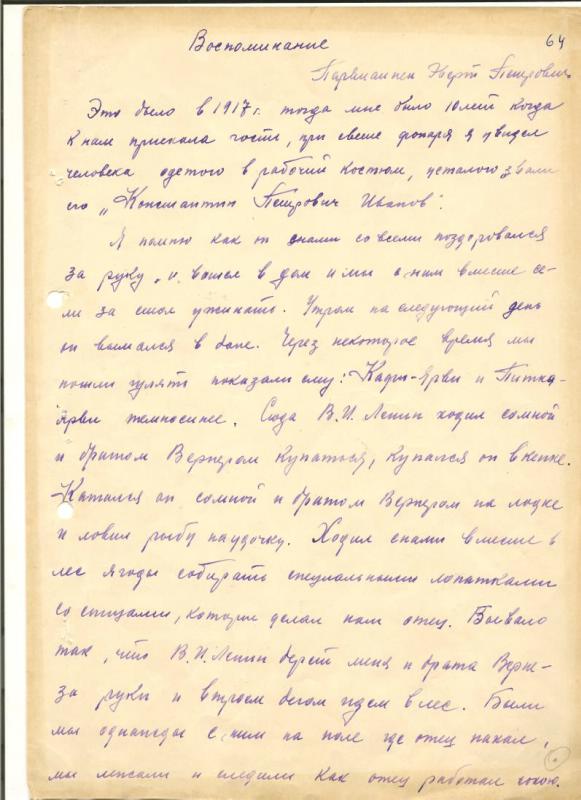 Воспоминание
64
Парвиаинен Эверт Петрович
Это было в 1917 г. тогда мне было 10 лет когда
к нам приехала гости, при свете фонаря я увидел
человека одетого в рабочий костюм, усталого звали
его „Константин Петрович Иванов".
Я помню как он снами со всеми поздоровался
за руку, и вошел в дом и мы с ним вместе се-
ли за стол ужинать. Утром на следующий день
он вымылся в бане. Через некоторое время мы
пошли гулять показали ему: Кафи-Ярви и Питка-
ярви темносинее. Сюда В.И. Ленин ходил сомной
и братом Вернером купаться, купался он в кепке.
Катался он сомной и братом Вернером на лодке
и ловил рыбу на удочку. Ходил снами вместе в
лес ягоды собирать специальными лопатками
со спицами, которые делал нам отец. Бывало
так, что В.И. Ленин берет меня и брата Верне-
за руки и втроем бегом идем в лес. Были
мы однажды с ним на поле где отец пахал,
мы лежали и следили как отец работал сохою.